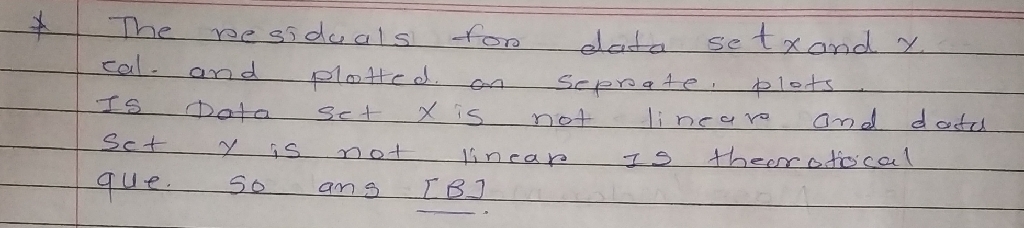 * The residuals for data set x and y.
cal. and plotted. on seprate. plots.
Is Data set X is not linear and data
set y is not linear Is theorotical
que. so ans [B]